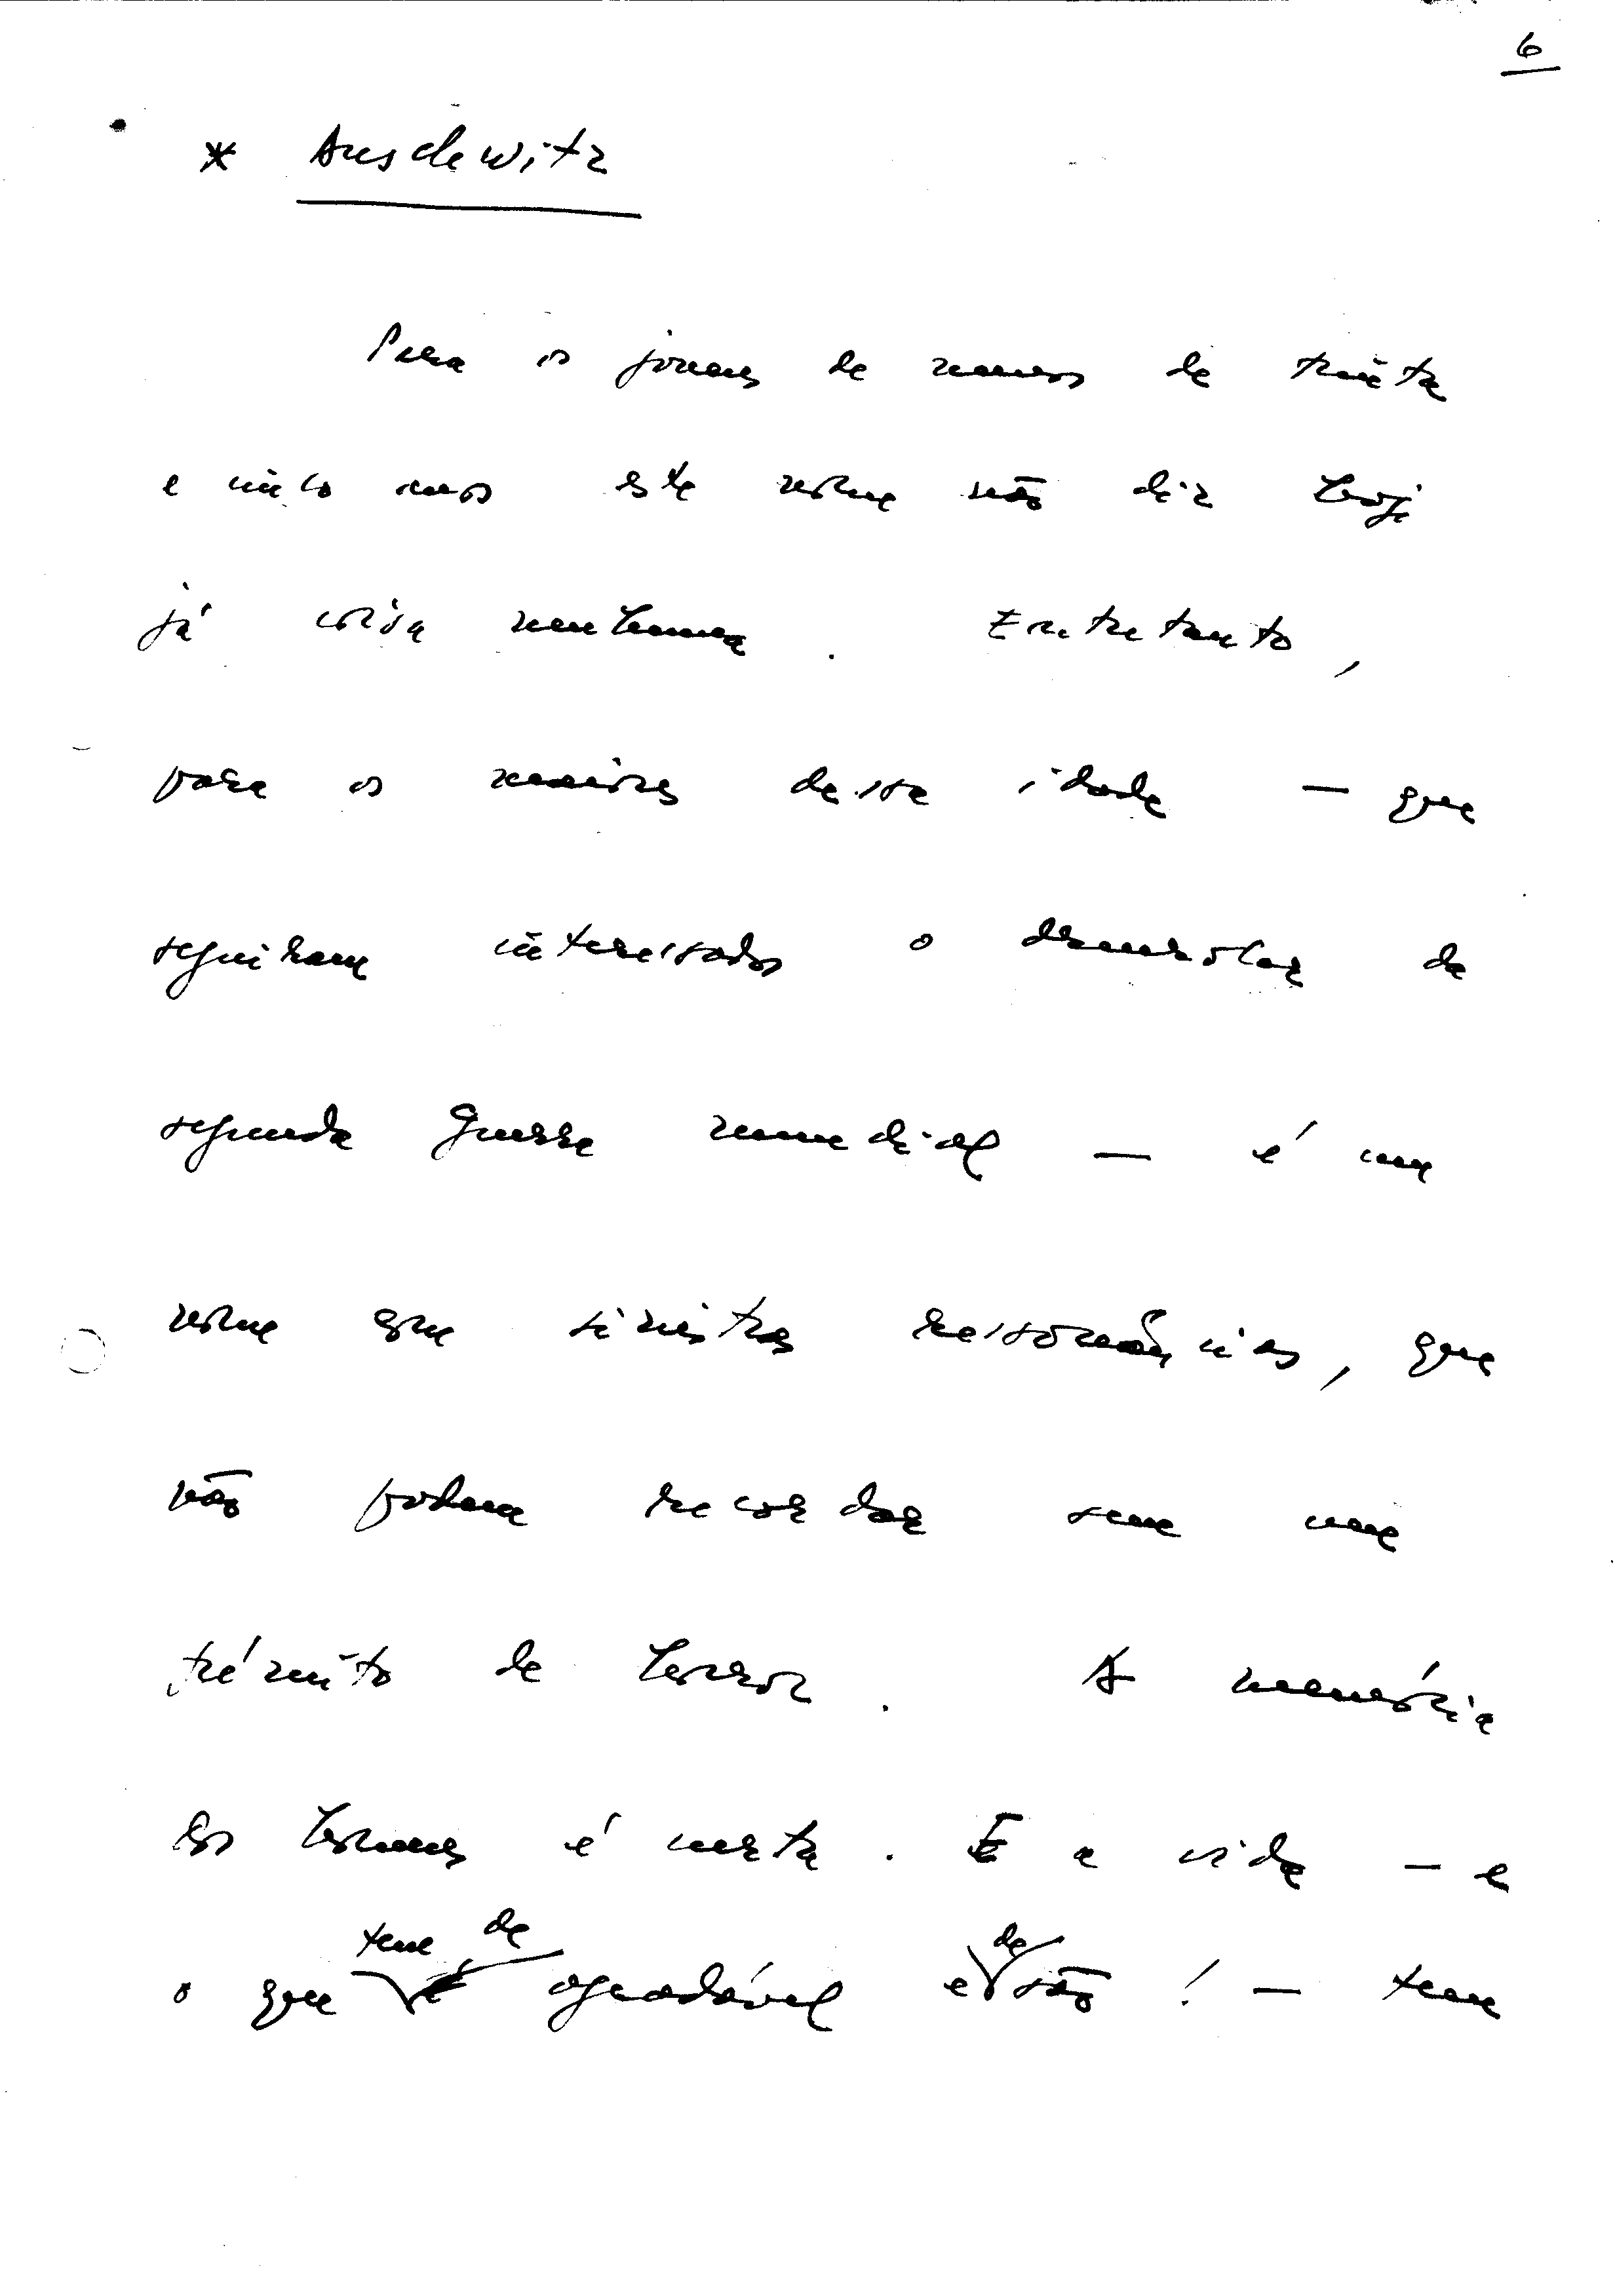 6
* Auschewitz
Para os jovens de menos de trinta
e cinco anos este nome não diz hoje
já coisa nenhuma. Entretanto,
para os maiores dessa idade — que
seguiram interessados o desenrolar da
segunda guerra mundial — é um
nome com sinistras ressonâncias, que
não podem recordar sem um
frémito de horror. A memória
dos homens é curta. E a vida — e
tem de de
o que é agradável e são! — tem